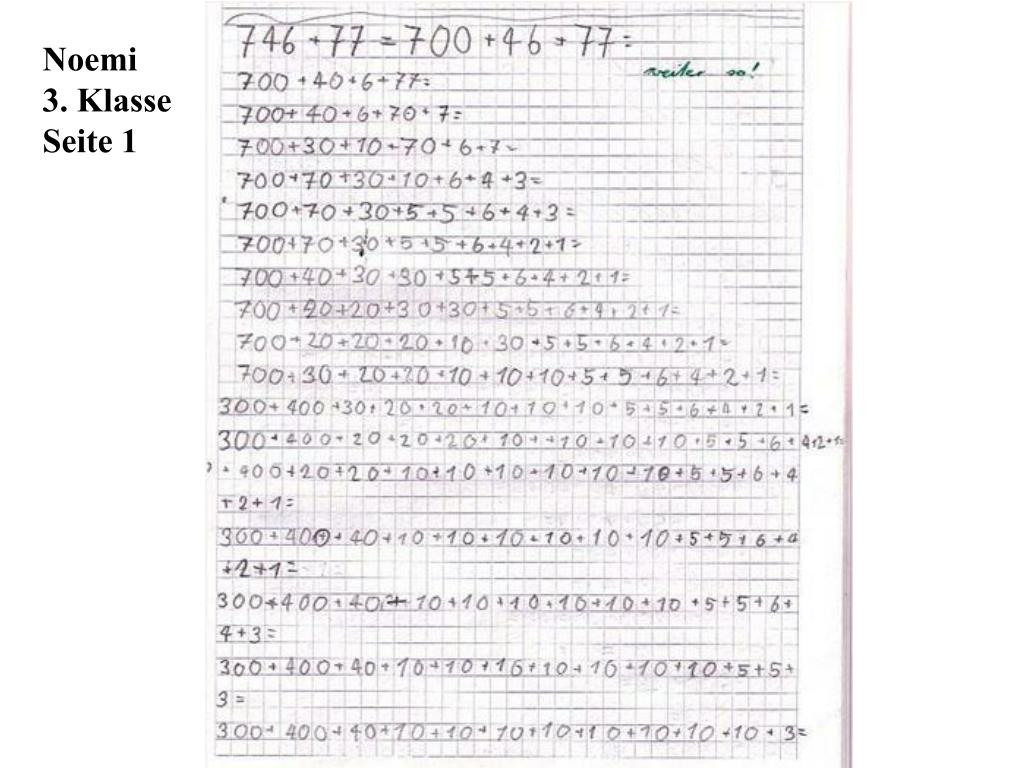 Noemi
3. Klasse
Seite 1
746+77=700+46+77=
weiter so!
700+40+6+77=
700+40+6+70+7=
700+30+10+70+6+7=
700+70+30+10+6+4+3=
700+70+30+5+5+6+4+3=
700+70+30+5+5+6+4+2+1=
700+40+30+30+5+5+6+4+2+1=
700+20+20+30+30+5+5+6+4+2+1=
700+20+20+20+10+30+5+5+6+4+2+1=
700+30+20+20+10+10+10+5+5+6+4+2+1=
300+400+30+20+20+10+10+10+5+5+6+4+2+1=
300+400+20+20+20+10++10+10+10+5+5+6+4+2+1=
+400+20+20+10+10+10+10+10+10+5+5+6+4
+2+1=
300+400+40+10+10+10+10+10+10+10+5+5+6+4
+2+1=
300+400+40+10+10+10+10+10+10+5+5+6+
4+3=
300+400+40+10+10+10+10+10+10+10+5+5+
3=
300+400+40+10+10+10+10+10+10+10+10+3=